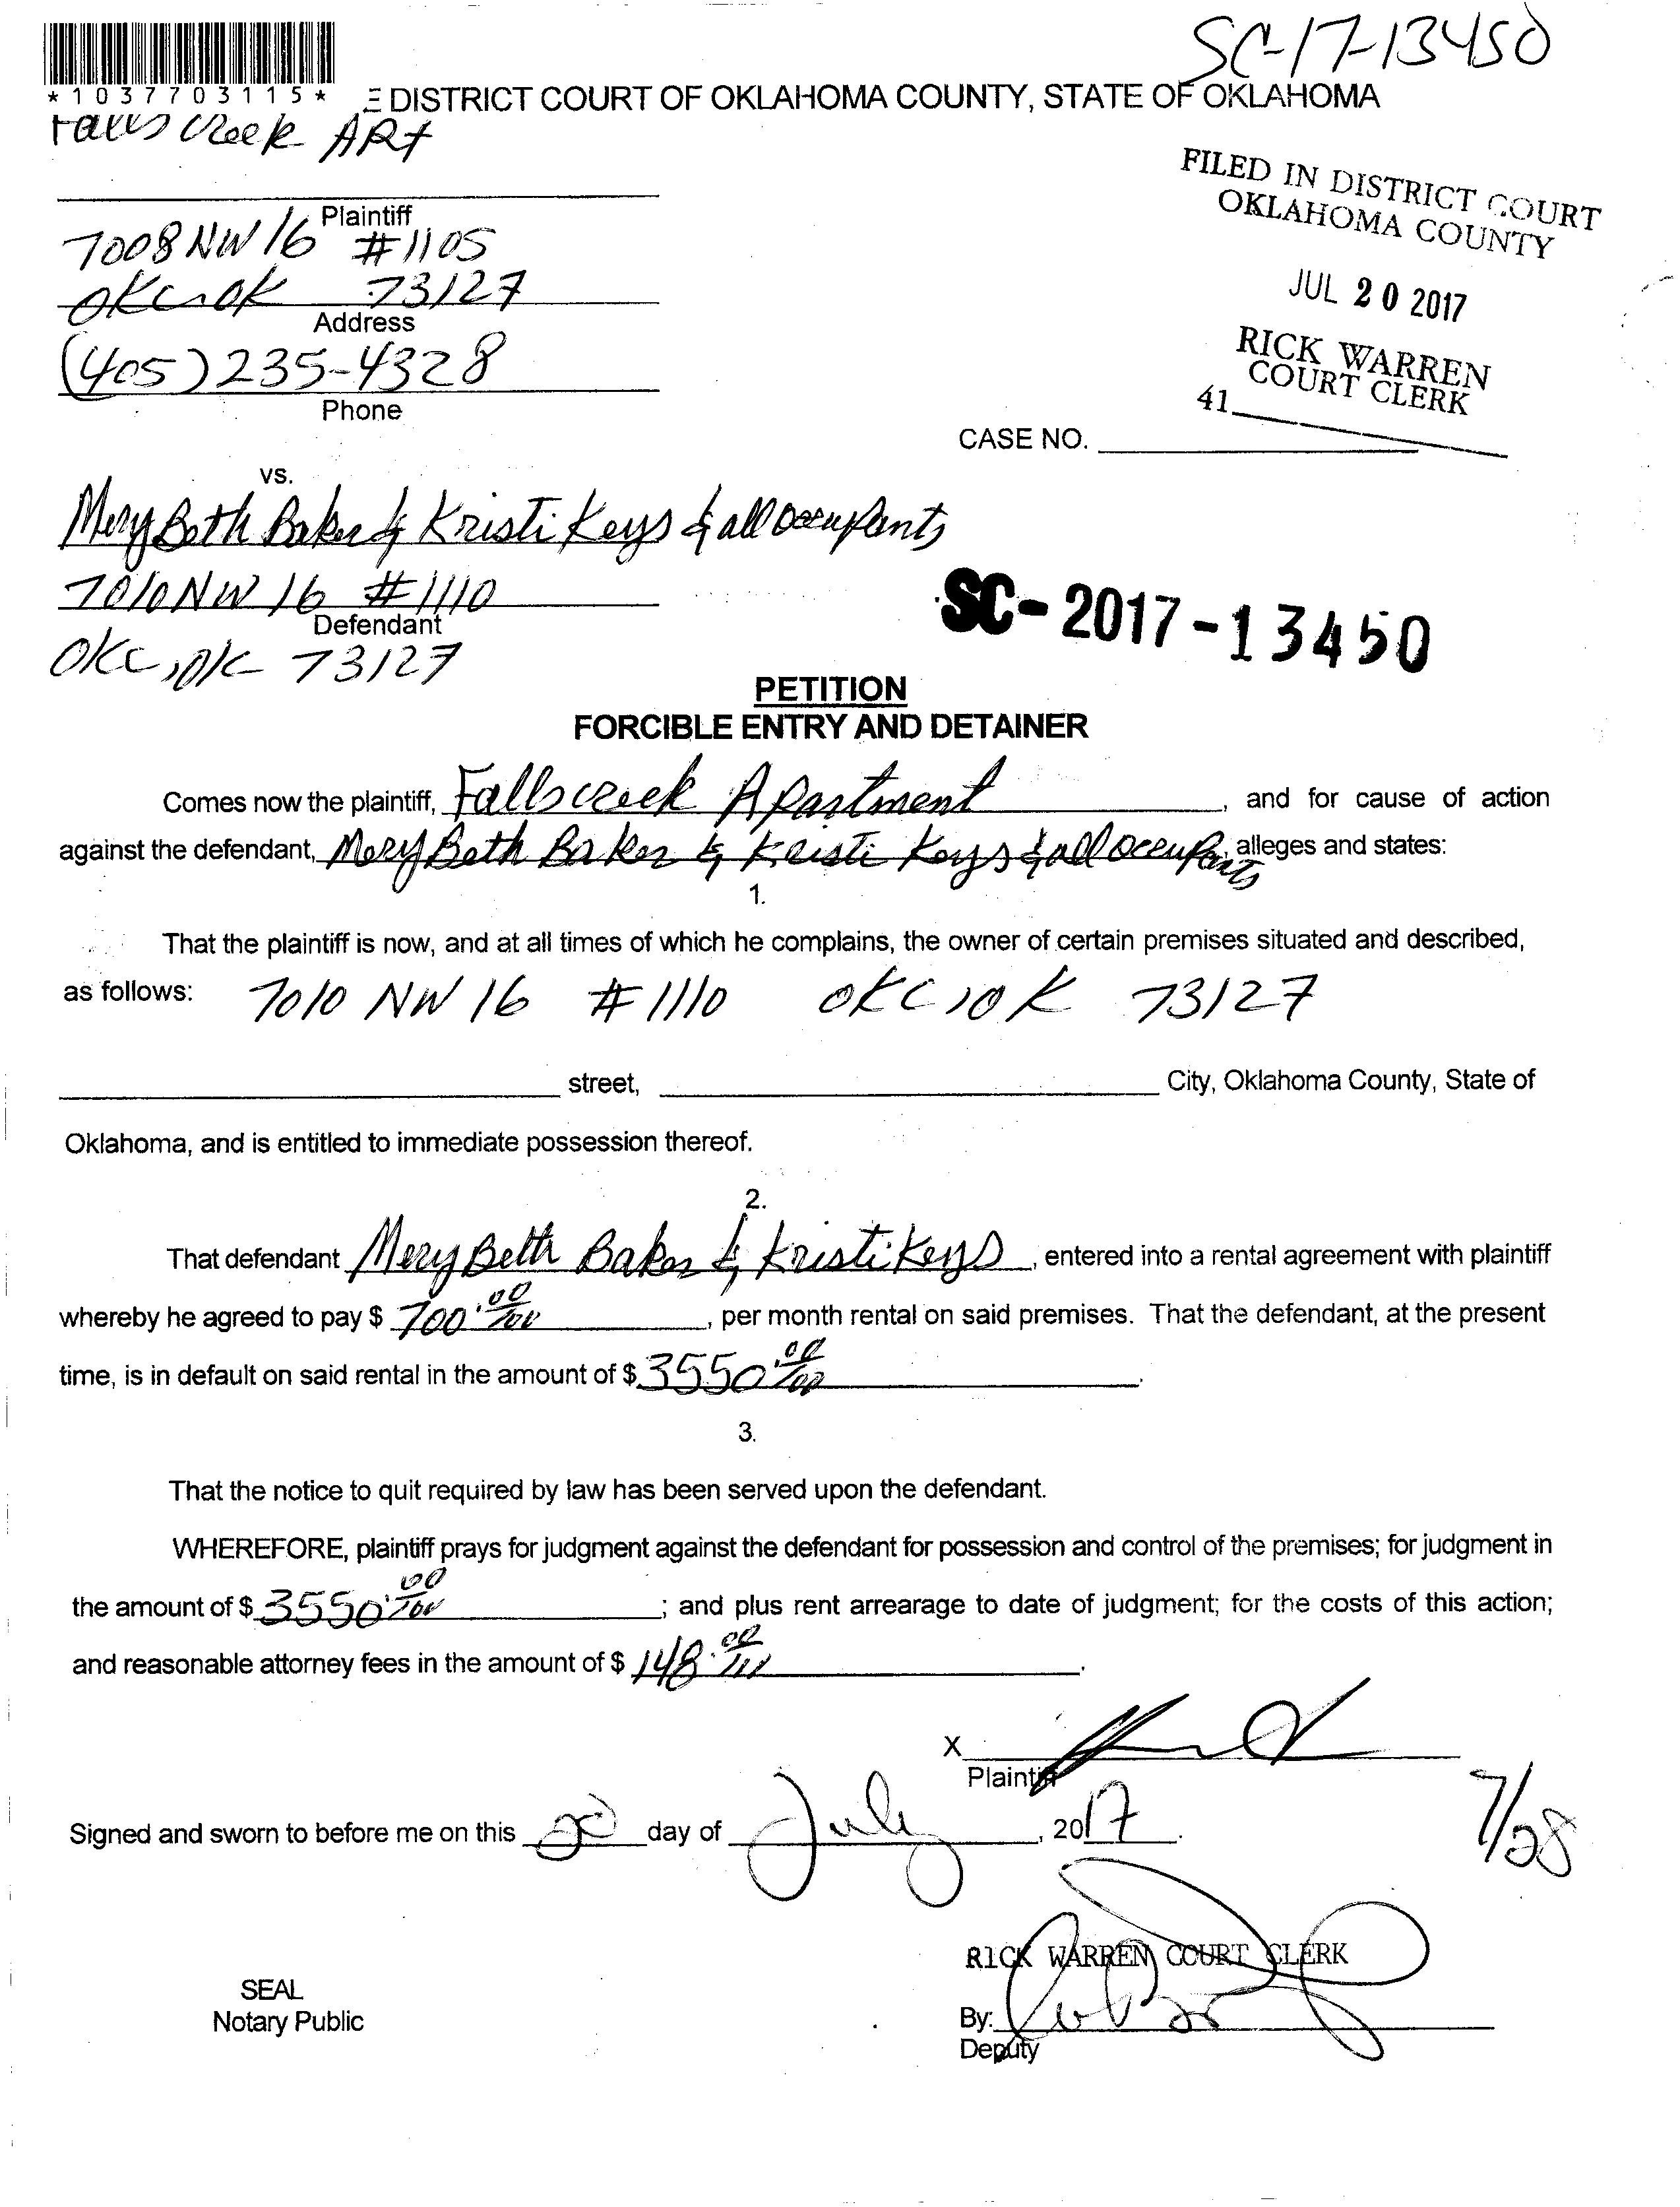 SC-17-13450
*1037703115*
E DISTRICT COURT OF OKLAHOMA COUNTY, STATE OF OKLAHOMA
Falls creek APt
Plaintiff
7008 NW 16 #1105
OKC, OK 73127
Address
(405) 235-4328
Phone
FILED IN DISTRICT COURT
OKLAHOMA COUNTY
JUL 20 2017
RICK WARREN
COURT CLERK
41
CASE NO.
vs.
Mery Beth Baker & Kristi Keys & all occupants
7010 NW 16 #1110
Defendant
OKC, OK 73127
SC-2017-13450
PETITION
FORCIBLE ENTRY AND DETAINER
Comes now the plaintiff, Fallscreek Apartment, and for cause of action
against the defendant, Mery Beth Baker & Kristi Keys & all occupants, alleges and states:
1.
That the plaintiff is now, and at all times of which he complains, the owner of certain premises situated and described,
as follows: 7010 NW 16 #1110 OKC, OK 73127
street, City, Oklahoma County, State of
Oklahoma, and is entitled to immediate possession thereof.
2.
That defendant Mery Beth Baker & Kristi Keys, entered into a rental agreement with plaintiff
whereby he agreed to pay $ 700.00/100, per month rental on said premises. That the defendant, at the present
time, is in default on said rental in the amount of $ 3550.00/100.
3.
That the notice to quit required by law has been served upon the defendant.
WHEREFORE, plaintiff prays for judgment against the defendant for possession and control of the premises; for judgment in
the amount of $ 3550.00/100; and plus rent arrearage to date of judgment; for the costs of this action;
and reasonable attorney fees in the amount of $ 148.00/100.
X
Plaintiff
Signed and sworn to before me on this 20 day of July, 2017.
7/28
RICK WARREN COURT CLERK
SEAL
Notary Public
By:
Deputy